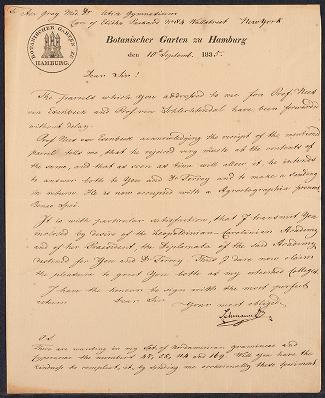 To Asa Gray Md. Dr Utica Gymnasium
Care of Elisha Peckard No 84 Wallstreet New York
BOTANISCHER GARTEN ZU
HAMBURG.
Botanischer Garten zu Hamburg
den 10th Septemb. 1835.
Dear Sir!
The parcels which you addressed to me for Prof Nees
von Esenbeck and Prof von Schlechtendal have been forwarded
without delay.
Prof Nees von Esenbeck acknowledging the receipt of the mentioned
parcel tells me that he rejoiced very much at the contents of
the same, and that as soon as time will allow it he intends
to answer both to You and Dr Torrey and to make a sending
in return. He is now occupied with a Agrostographia
It is with particular satisfaction, that I transmit You
enclosed by desire of the Leopoldinian-Carolinian Academy
and of her President, the Diplomata of the said Academy
destined for You and Dr Torrey. Thus I dare now claim
the pleasure to greet You both as my esteemed Colleges.
I have the honour to sign with the most perfect
esteem Dear Sir
Your most obliged
Lehmann
P.S.
There are wanting in my Set of Nordamerican gramineae and
Cyperaceae the numbers 45, 58, 114 and 169. Will you have the
kindness to complect it, by sending me occasionally these Speciment